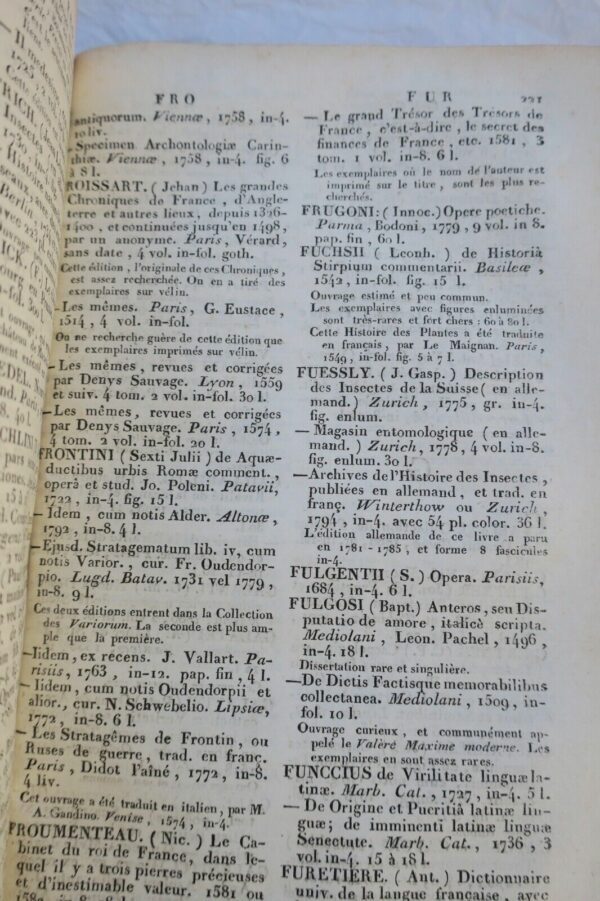 FRO
antiquorum. Viennæ, 1758, in-4.
10 liv.
—Specimen Archontologiæ Carin-
thiæ. Viennæ, 1758, in-4. fig. 6
à 8 l.
ROISSART. (Jehan) Les grandes
Chroniques de France, d'Angle-
terre et autres lieux, depuis 1326-
1400, et continuées jusqu'en 1498,
par un anonyme. Paris, Vérard,
sans date, 4 vol. in-fol. goth.
Cette édition, l'originale de ces Chroniques,
est assez recherchée. On en a tiré des
exemplaires sur vélin.
—Les mêmes. Paris, G. Eustace,
1514, 4 vol. in-fol.
On ne recherche guère de cette édition que
les exemplaires imprimés sur vélin.
—Les mêmes, revues et corrigées
par Denys Sauvage. Lyon, 1559
et suiv. 4 tom. 2 vol. in-fol. 30 l.
—Les mêmes, revues et corrigées
par Denys Sauvage. Paris, 1574,
4 tom. 2 vol. in-fol. 20 l.
FRONTINI (Sexti Julii) de Aquæ-
ductibus urbis Romæ comment.,
operâ et stud. Jo. Poleni. Patavii,
1722, in-4. fig. 15 l.
—Idem, cum notis Alder. Altonæ,
1792, in-8. 4 l.
—Ejusd. Stratagematum lib. iv, cum
notis Varior., cur. Fr. Oudendor-
pio. Lugd. Batav. 1731 vel 1779,
in-8. 9 l.
Ces deux éditions entrent dans la Collection
des Variorum. La seconde est plus am-
ple que la première.
—Iidem, ex recens. J. Vallart. Pa-
risiis, 1763, in-12. pap. fin, 4 l.
—Iidem, cum notis Oudendorpii et
alior., cur. N. Schwebelio. Lipsiæ,
1772, in-8. 6 l.
—Les Stratagêmes de Frontin, ou
Ruses de guerre, trad. en franç.
Paris, Didot l'aîné, 1772, in-8.
4 liv.
Cet ouvrage a été traduit en italien, par M.
A. Gandino. Venise, 1574, in-4.
FROUMENTEAU. (Nic.) Le Ca-
binet du roi de France, dans le-
quel il y a trois pierres précieuses
et d'inestimable valeur. 1581 ou
FUR 221
— Le grand Trésor des Trésors de
France, c'est-à-dire, le secret des
finances de France, etc. 1581, 3
tom. 1 vol. in-8. 6 l.
Les exemplaires où le nom de l'auteur est
imprimé sur le titre, sont les plus re-
cherchés.
FRUGONI: (Innoc.) Opere poetiche.
Parma, Bodoni, 1779, 9 vol. in 8.
pap. fin, 60 l.
FUCHSII (Leonh.) de Historiâ
Stirpium commentarii. Basileæ,
1542, in-fol. fig. 15 l.
Ouvrage estimé et peu commun.
Les exemplaires avec figures enluminées
sont très-rares et fort chers : 60 à 80 l.
Cette Histoire des Plantes a été traduite
en français, par Le Maignan. Paris,
1549, in-fol. fig. 5 à 7 l.
FUESSLY. (J. Gasp.) Description
des Insectes de la Suisse (en alle-
mand.) Zurich, 1775, gr. in-4.
fig. enlum.
— Magasin entomologique (en alle-
mand.) Zurich, 1778, 4 vol. in-8.
fig. enlum. 30 l.
—Archives de l'Histoire des Insectes,
publiées en allemand, et trad. en
franç. Winterthow ou Zurich,
1794, in-4. avec 54 pl. color. 36 l.
L'édition allemande de ce livre a paru
en 1781-1785, et forme 8 fascicules
in-4.
FULGENTII (S.) Opera. Parisiis,
1684, in-4. 6 l.
FULGOSI (Bapt.) Anteros, seu Dis-
putatio de amore, italicè scripta.
Mediolani, Leon. Pachel, 1496,
in-4. 18 l.
Dissertation rare et singulière.
—De Dictis Factisque memorabilibus
collectanea. Mediolani, 1509, in-
fol. 10 l.
Ouvrage curieux, et communément ap-
pelé le Valère Maxime moderne. Les
exemplaires en sont assez rares.
FUNCCIUS de Virilitate linguæ la-
tinæ. Marb. Cat., 1727, in-4. 5 l.
— De Origine et Pueritiâ latinæ lin-
guæ; de imminenti latinæ linguæ
Senectute. Marb. Cat., 1736, 3
vol. in-4. 15 à 18 l.
FURETIERE. (Ant.) Dictionnaire
univ. de la langue française, avec